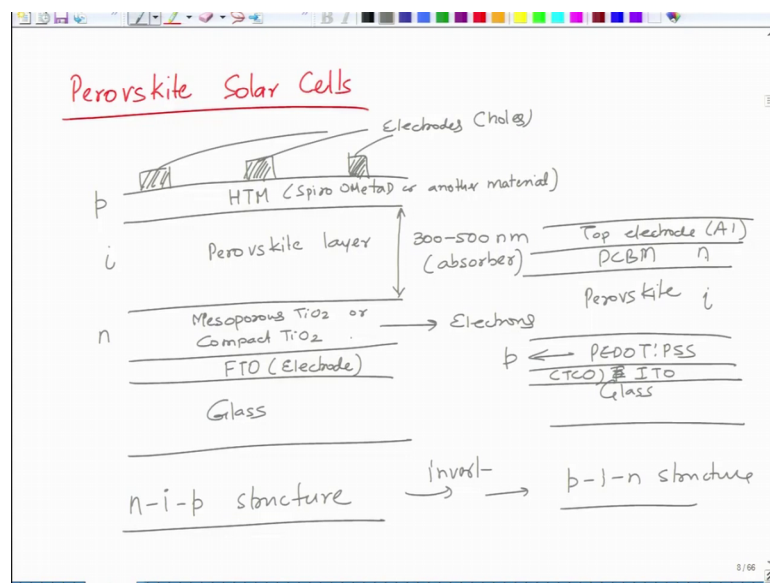 Perovskite Solar Cells
Electrodes (holes)
p
HTM (Spiro OMetaD or another material)
i
Perovskite layer
300-500 nm
(absorber)
n
Mesoporous TiO2 or
Compact TiO2
Electrons
FTO (Electrode)
Glass
n-i-p structure
invert
Top electrode (Al)
PCBM n
Perovskite i
p
PEDOT:PSS
(TCO) ITO
Glass
p-i-n structure
8/66